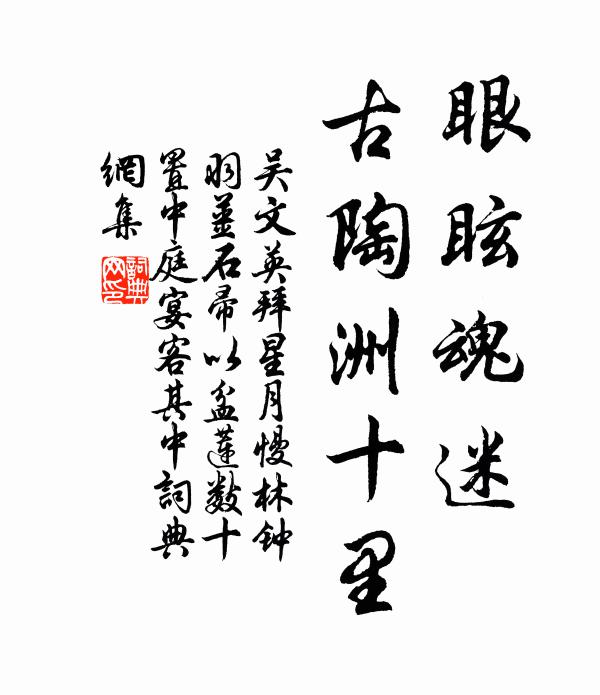 眼眩魂迷
古陶洲十里
吴文英拜星月慢林钟
羽薑石帚以盆蓮数十
置中庭宴客其中詞典
網集
詞典
网印